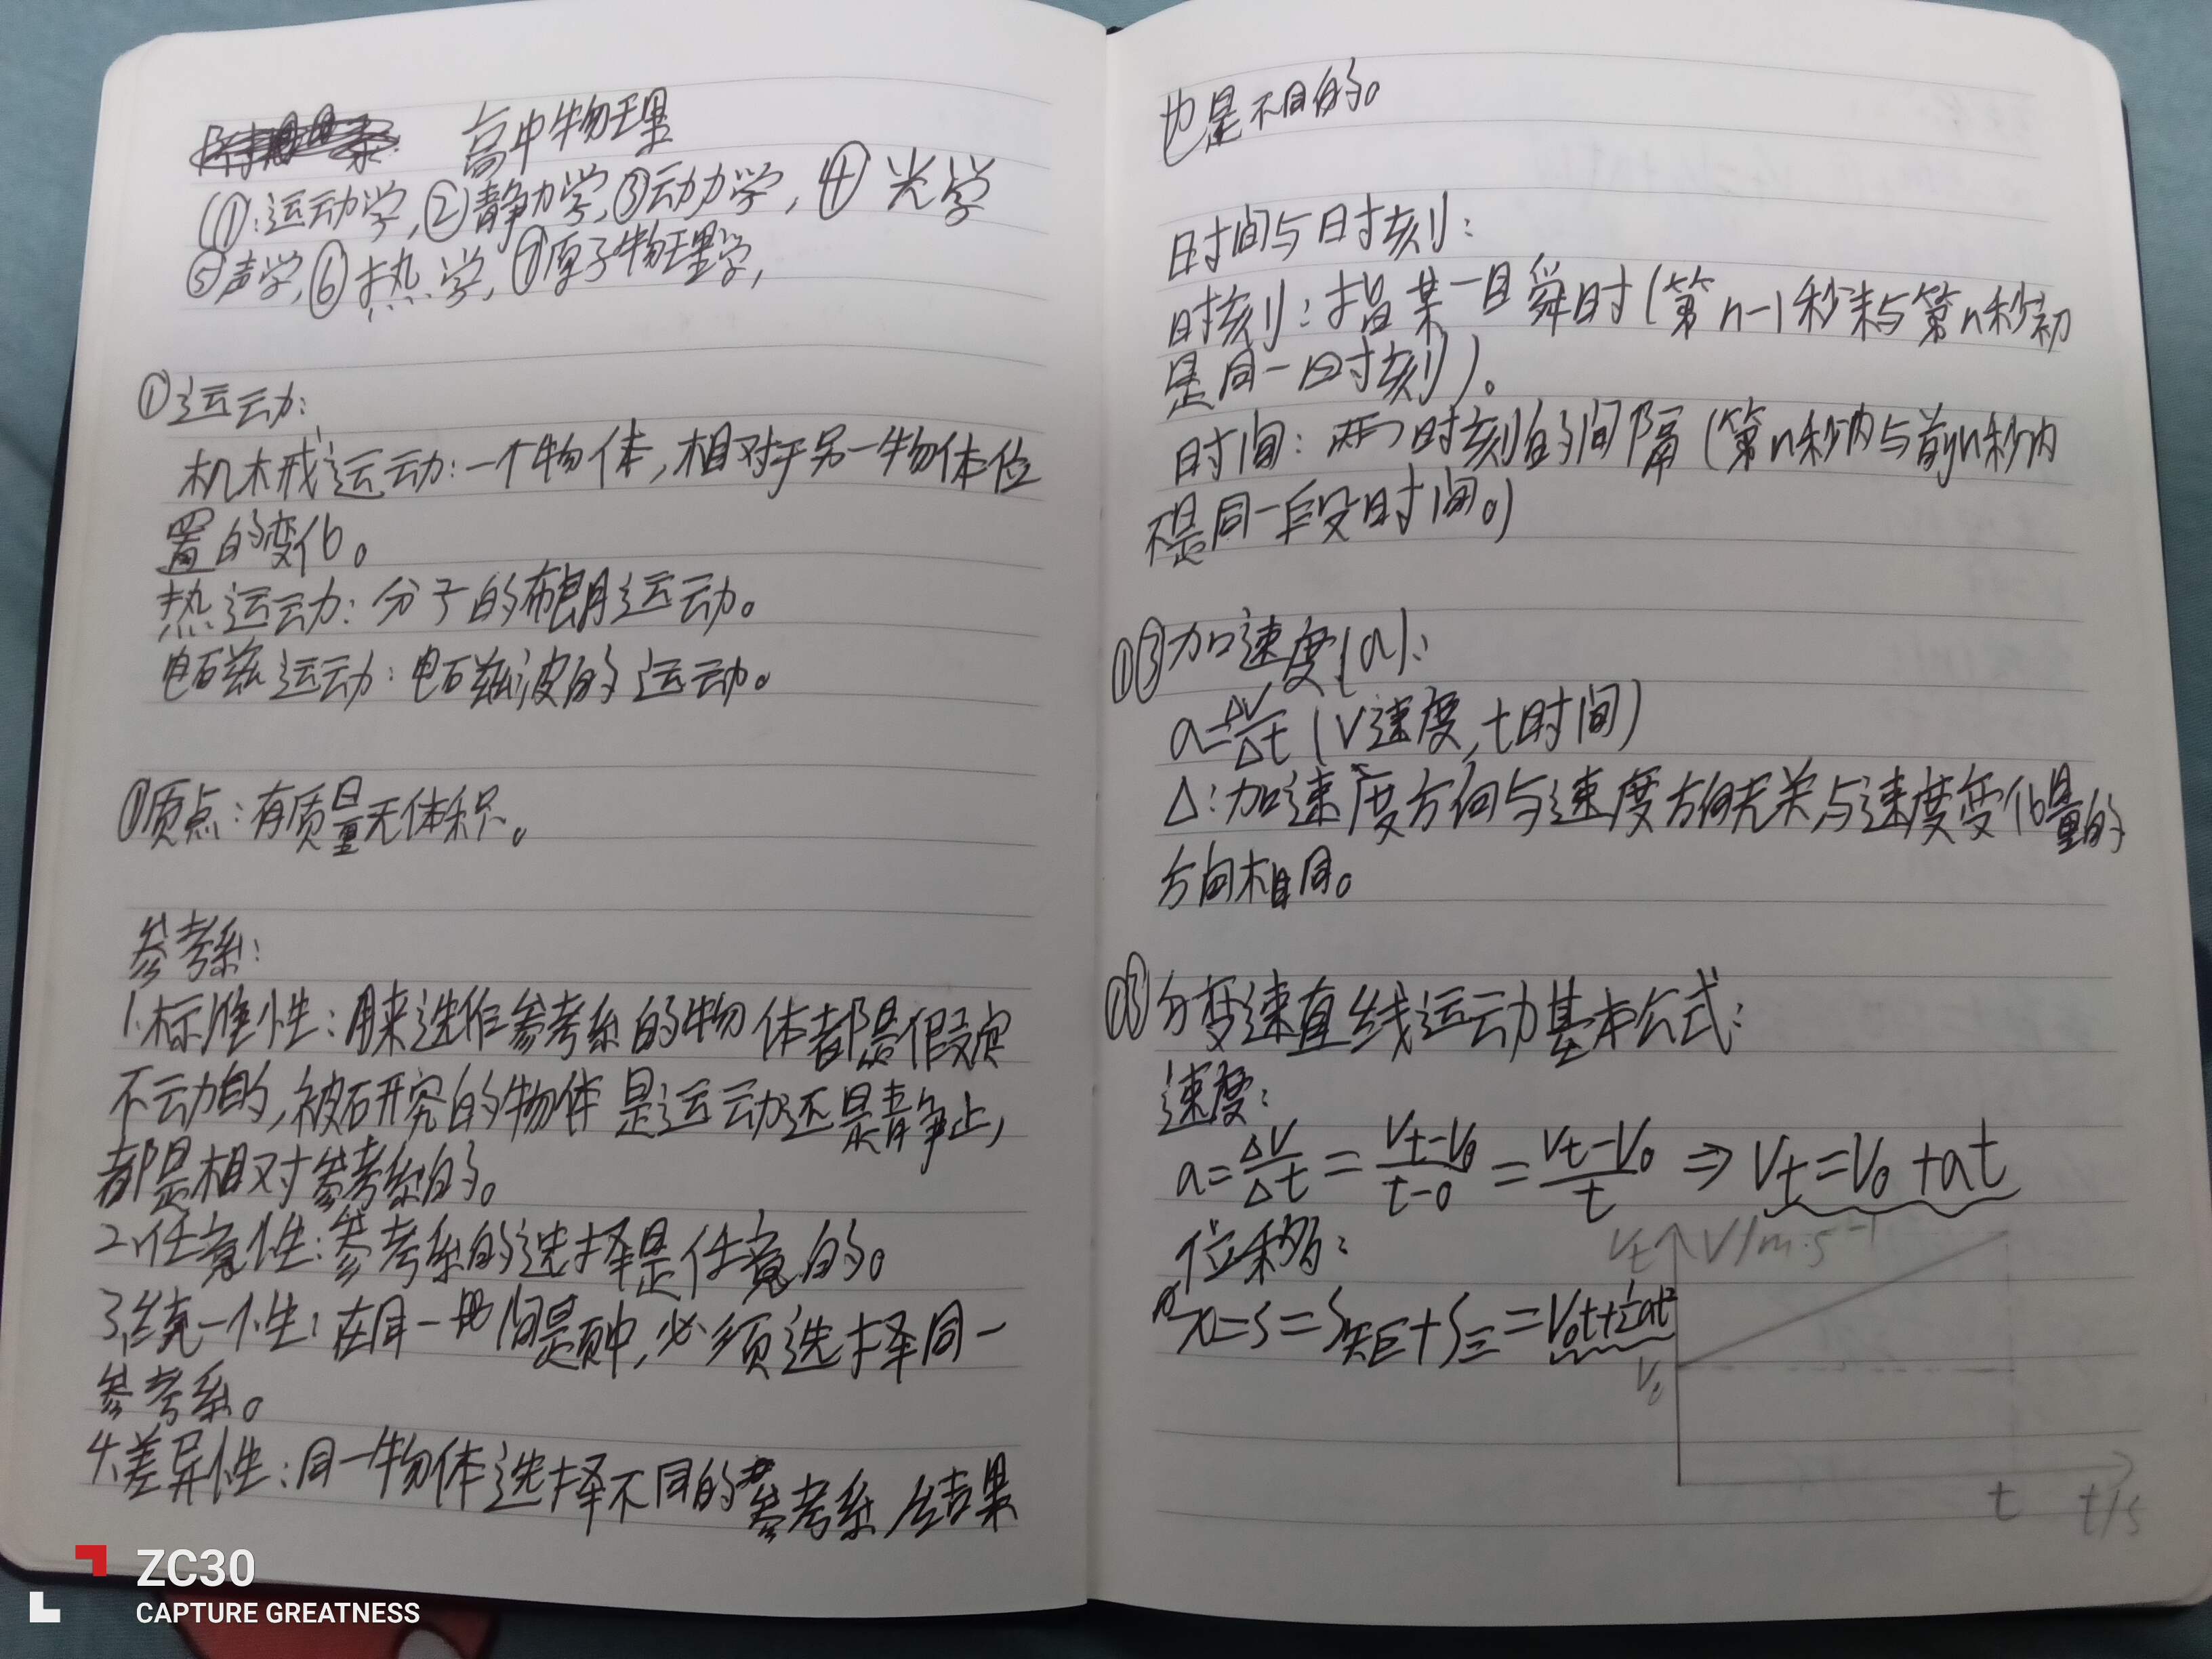 高中物理
①:运动学,②静力学,③动力学,④光学
⑤声学,⑥热学,⑦原子物理学,
①运动:
机械运动:一个物体,相对于另一物体位
置的变化。
热运动:分子的布朗运动。
电磁运动:电磁波的运动。
①质点:有质量无体积。
参考系:
1.标准性:用来选作参考系的物体都是假定
不动的,被研究的物体是运动还是静止,
都是相对参考系的。
2.任意性:参考系的选择是任意的。
3.统一性:在同一地问题中,必须选择同一
参考系。
4.差异性:同一物体选择不同的参考系,结果
也是不同的。
时间与时刻:
时刻:指某一瞬时(第n-1秒末与第n秒初
是同一时刻)。
时间:两个时刻的间隔(第n秒内与前n秒内
不是同一段时间。)
加速度(a):
a=ΔV/Δt (V速度,t时间)
Δ:加速度方向与速度方向无关与速度变化量的
方向相同。
匀变速直线运动基本公式:
速度:
a=ΔV/Δt=(Vt-V0)/(t-0)=(Vt-V0)/t⇒Vt=V0+at
位移:
x=S=S矩+S三=V0t+½at²
Vt V/m·s⁻¹
V0
t t/s
ZC30
CAPTURE GREATNESS